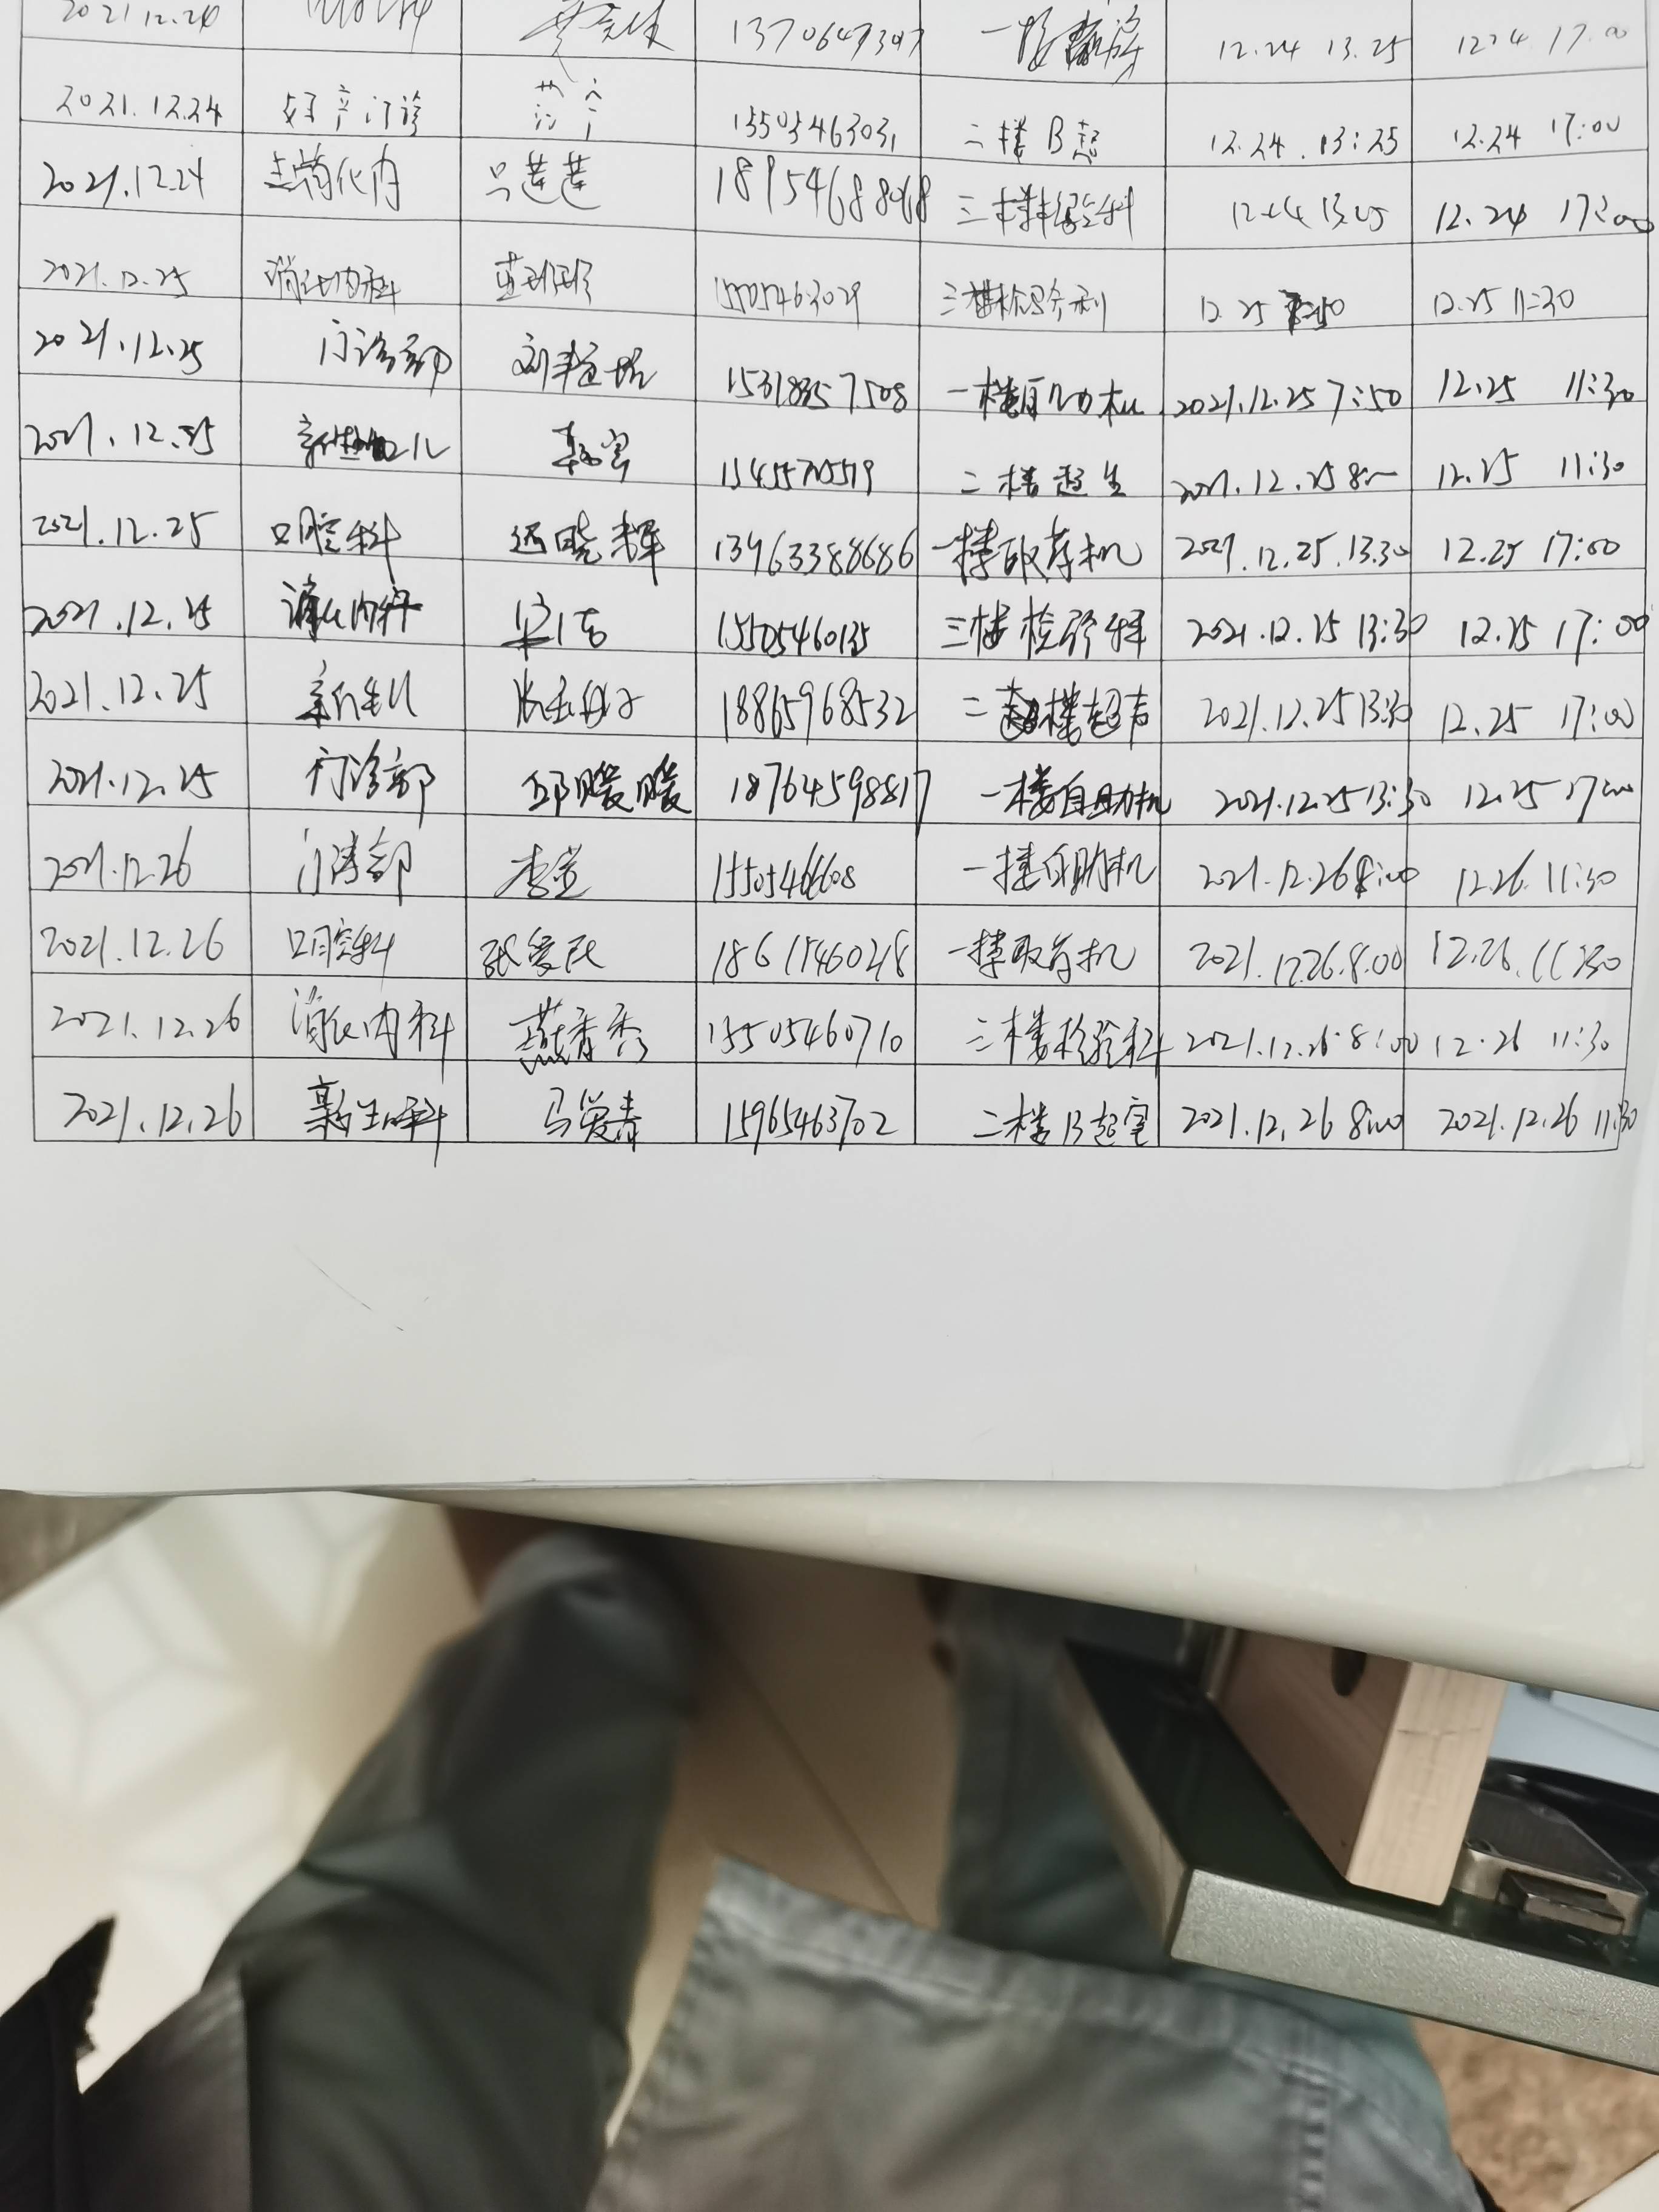 2021.12.24 13706479307 12.24 13.25 12.24 17.00
2021.12.24 妇产门诊 15505463031 二楼B超 12.24 13:25 12.24 17:00
2021.12.24 莲莲 18954688068 三楼检验科 12.24 13:25 12.24 17:00
2021.12.25 消化内科 15505463029 三楼检验科 12.25 7:50 12.25 11:30
2021.12.25 门诊部 刘 15318357508 一楼自助机 2021.12.25 7:50 12.25 11:30
2021.12.25 新生儿 二楼超声 2021.12.25 8:00 12.25 11:30
2021.12.25 口腔科 晓辉 13963388686 一楼取存机 2021.12.25.13.30 12.25 17:00
2021.12.25 消化内科 15505460135 三楼检验科 2021.12.25 13:30 12.25 17:00
2021.12.25 新生儿 18865968532 二楼超声 2021.12.25 13:30 12.25 17:00
2021.12.25 门诊部 邱暖暖 18764598817 一楼自助机 2021.12.25 13:30 12.25 17:00
2021.12.26 门诊部 李萱 15505466608 一楼自助机 2021.12.26 8:00 12.26 11:30
2021.12.26 口腔科 张爱民 18611546028 一楼取存机 2021.12.26.8.00 12.26.11:30
2021.12.26 消化内科 燕香秀 15505460710 三楼检验科 2021.12.26.8:00 12.26 11:30
2021.12.26 新生儿科 马爱春 15965463702 二楼B超室 2021.12.26 8:00 2021.12.26 11:30